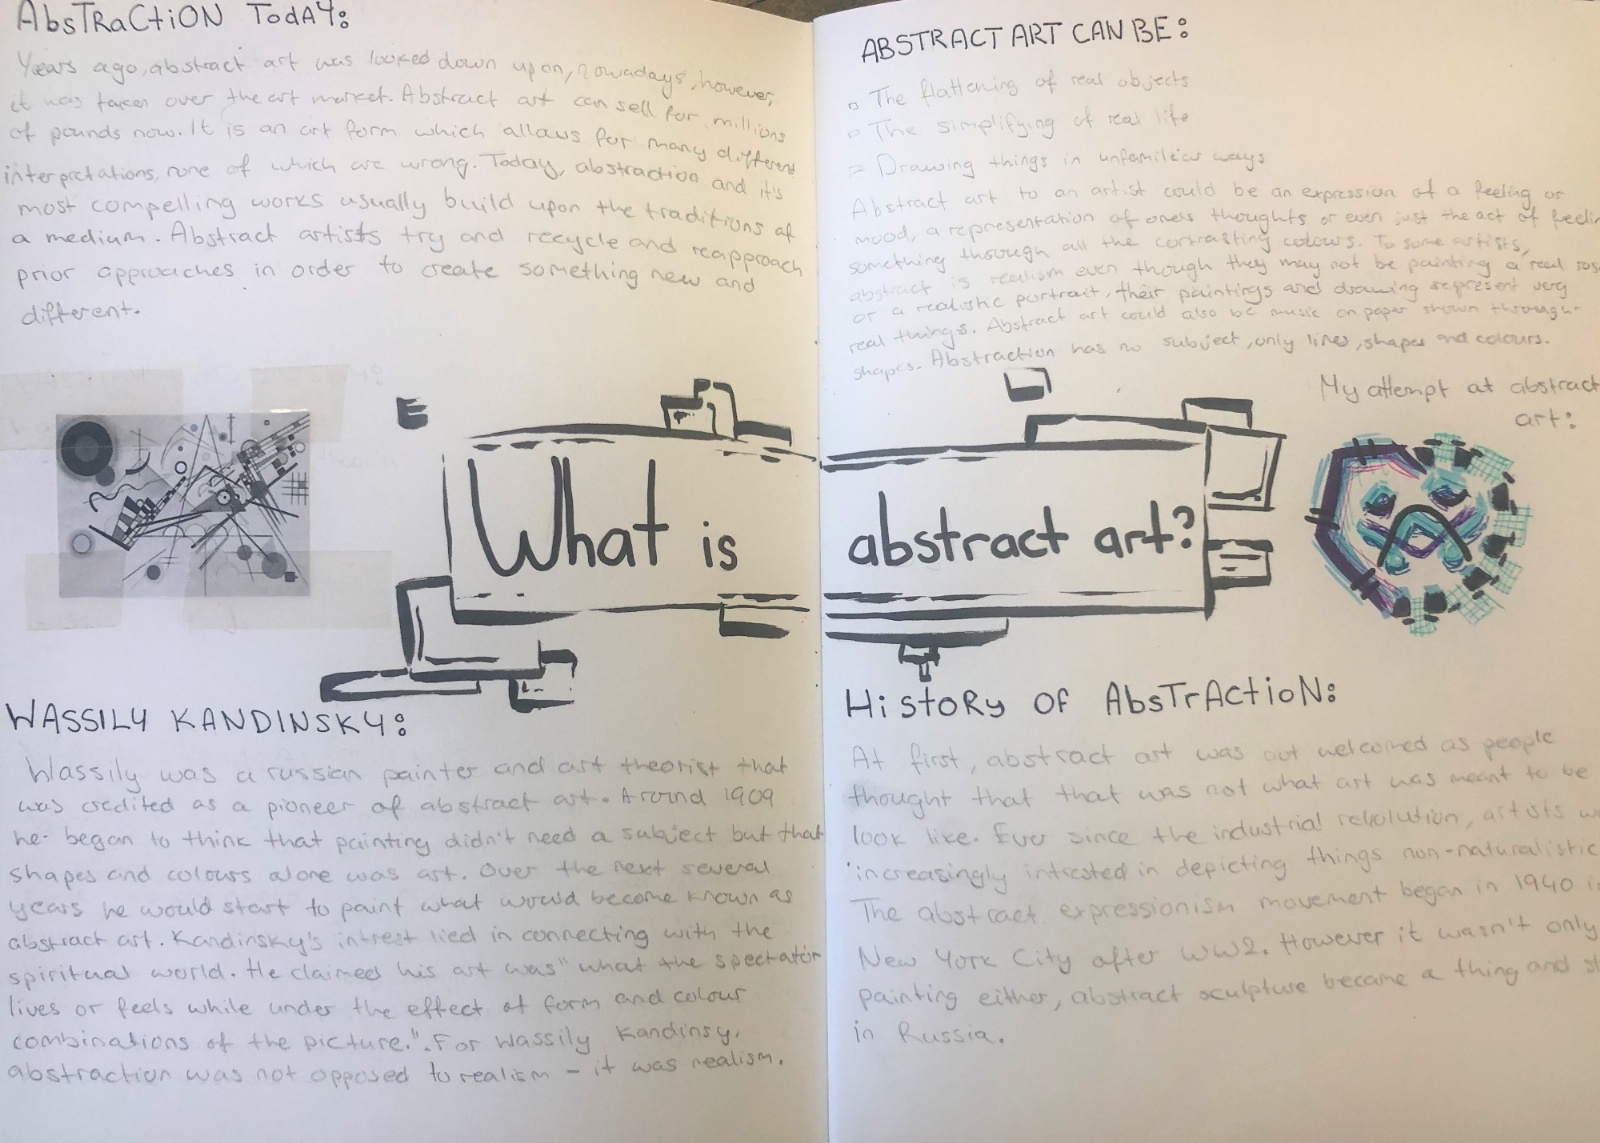 AbsTRaCtiON TodAY:
Years ago, abstract art was looked down upon, nowadays, however,
it was taken over the art market. Abstract art can sell for millions
of pounds now. It is an art form which allows for many different
interpretations, none of which are wrong. Today, abstraction and it's
most compelling works usually build upon the traditions of
a medium. Abstract artists try and recycle and reapproach
prior approaches in order to create something new and
different.
ABSTRACT ART CAN BE:
The flattening of real objects
The simplifying of real life
Drawing things in unfamiliar ways
Abstract art to an artist could be an expression of a feeling or
mood, a representation of ones thoughts or even just the act of
something through all the contrasting colours. To some artists,
abstract is realism even though they may not be painting a real
or a realistic portrait, their paintings and drawing represent very
real things. Abstract art could also be music on paper shown through
shapes. Abstraction has no subject, only lines, shapes and colours.
My attempt at abstract
art:
What is abstract art?
WASSILY KANDINSKY:
Wassily was a russian painter and art theorist that
was credited as a pioneer of abstract art. Around 1909
he began to think that painting didn't need a subject but that
shapes and colours alone was art. Over the next several
years he would start to paint what would become known as
abstract art. Kandinsky's intrest lied in connecting with the
spiritual world. He claimed his art was "what the spectator
lives or feels while under the effect of form and colour
combinations of the picture.". For Wassily Kandinsy,
abstraction was not opposed to realism - it was realism.
HiStoRy OF AbsTrACtioN:
At first, abstract art was not welcomed as people
thought that that was not what art was meant to be
look like. Ever since the industrial revolution, artists
increasingly intrested in depicting things non-naturalistic
The abstract expressionism movement began in 1940
New York City after WW2. However it wasn't only
painting either, abstract sculpture became a thing and
in Russia.